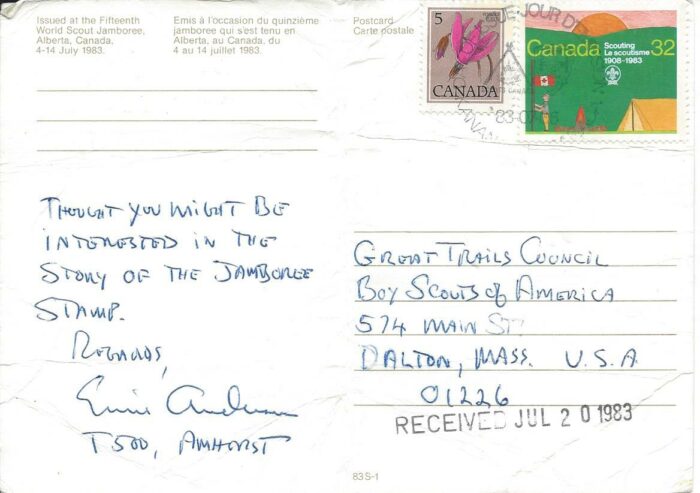 Issued at the Fifteenth
World Scout Jamboree,
Alberta, Canada,
4-14 July 1983.
Emis à l'occasion du quinzième
jamboree qui s'est tenu en
Alberta, au Canada, du
4 au 14 juillet 1983.
Postcard
Carte postale
5
CANADA
Canada
Scouting
Le scoutisme
1908-1983
32
JOUR D'
CANADA
THOUGHT YOU MIGHT BE
INTERESTED IN THE
STORY OF THE JAMBOREE
STAMP.
REGARDS,
T500, AMHERST
GREAT TRAILS COUNCIL
BOY SCOUTS of AMERICA
574 MAIN ST
DALTON, MASS. U.S.A
01226
RECEIVED JUL 20 1983
83 S-1